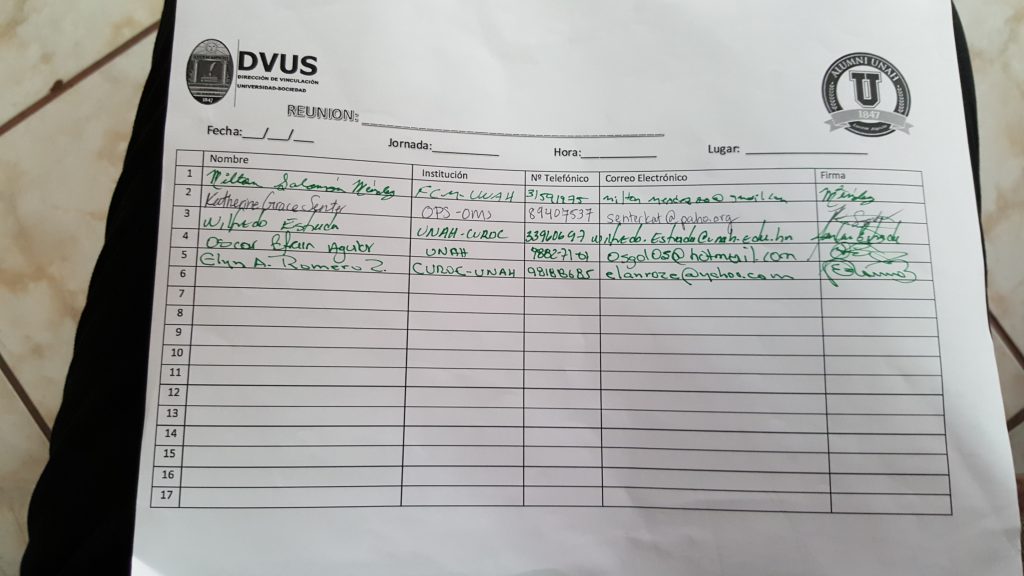 DVUS
DIRECCIÓN DE VINCULACIÓN
UNIVERSIDAD-SOCIEDAD
1847
ALUMNI UNAH
U
1847
REUNION: ____________________
Fecha:__/__/__ Jornada:__________ Hora:__________ Lugar: __________
Nombre Institución Nº Telefónico Correo Electrónico Firma
1 Milton Salomón FCM-UNAH
2 Katherine Grace OPS-OMS 89407537 senterkat@paho.org
3 Wilfredo Estrada UNAH-CUROC 33960697 wilfredo.Estrada@unah.edu.hn
4 Oscar UNAH osgd105@hotmail.com
5 Elyn A. Romero Z. CUROC-UNAH 98188685 elanroze@yahoo.com
6
7
8
9
10
11
12
13
14
15
16
17